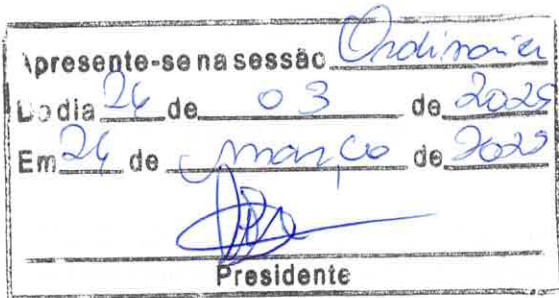 Apresente-se na sessão Ordinária
Do dia 24 de 03 de 2025
Em 24 de março de 2025
Presidente